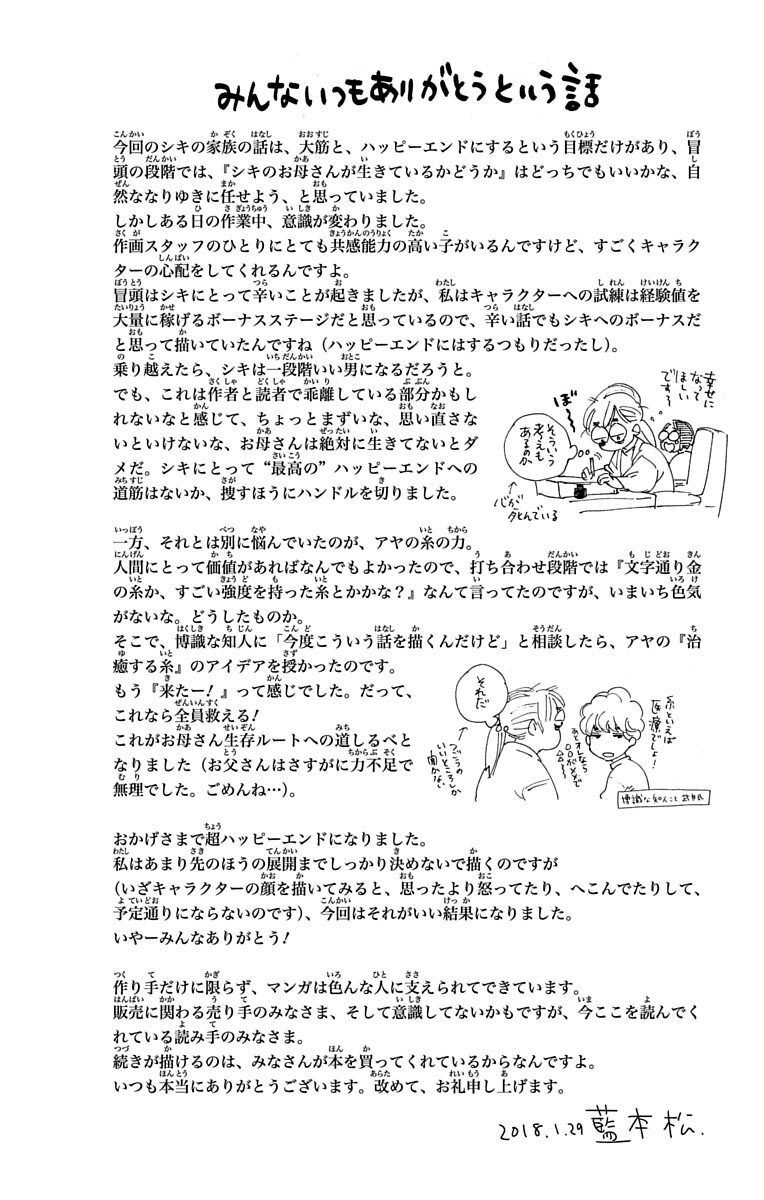 みんないつもありがとうという話
今回のシキの家族の話は、大筋と、ハッピーエンドにするという目標だけがあり、冒
頭の段階では、『シキのお母さんが生きているかどうか』はどっちでもいいかな、自
然ななりゆきに任せよう、と思っていました。
しかしある日の作業中、意識が変わりました。
作画スタッフのひとりにとても共感能力の高い子がいるんですけど、すごくキャラク
ターの心配をしてくれるんですよ。
冒頭はシキにとって辛いことが起きましたが、私はキャラクターへの試練は経験値を
大量に稼げるボーナスステージだと思っているので、辛い話でもシキへのボーナスだ
と思って描いていたんですね（ハッピーエンドにはするつもりだったし）。
乗り越えたら、シキは一段階いい男になるだろうと。
でも、これは作者と読者で乖離している部分かもし
れないなと感じて、ちょっとまずいな、思い直さな
いといけないな、お母さんは絶対に生きてないとダ
メだ。シキにとって“最高の”ハッピーエンドへの
道筋はないか、捜すほうにハンドルを切りました。
幸せに
なって
ほしい
です〜
ぼ〜
そういう
考えも
あるのか
心が
死んでいる
一方、それとは別に悩んでいたのが、アヤの糸の力。
人間にとって価値があればなんでもよかったので、打ち合わせ段階では『文字通り金
の糸か、すごい強度を持った糸とかかな？』なんて言ってたのですが、いまいち色気
がないな。どうしたものか。
そこで、博識な知人に「今度こういう話を描くんだけど」と相談したら、アヤの『治
癒する糸』のアイデアを授かったのです。
もう『来たー！』って感じでした。だって、
これなら全員救える！
これがお母さん生存ルートへの道しるべと
なりました（お父さんはさすがに力不足で
無理でした。ごめんね…）。
それだ
糸といえば
医療でしょ！
あとオレなら
博識な知人こと武井氏
おかげさまで超ハッピーエンドになりました。
私はあまり先のほうの展開までしっかり決めないで描くのですが
（いざキャラクターの顔を描いてみると、思ったより怒ってたり、へこんでたりして、
予定通りにならないのです）、今回はそれがいい結果になりました。
いやーみんなありがとう！
作り手だけに限らず、マンガは色んな人に支えられてできています。
販売に関わる売り手のみなさま、そして意識してないかもですが、今ここを読んでく
れている読み手のみなさま。
続きが描けるのは、みなさんが本を買ってくれているからなんですよ。
いつも本当にありがとうございます。改めて、お礼申し上げます。
2018.1.29 藍本松.